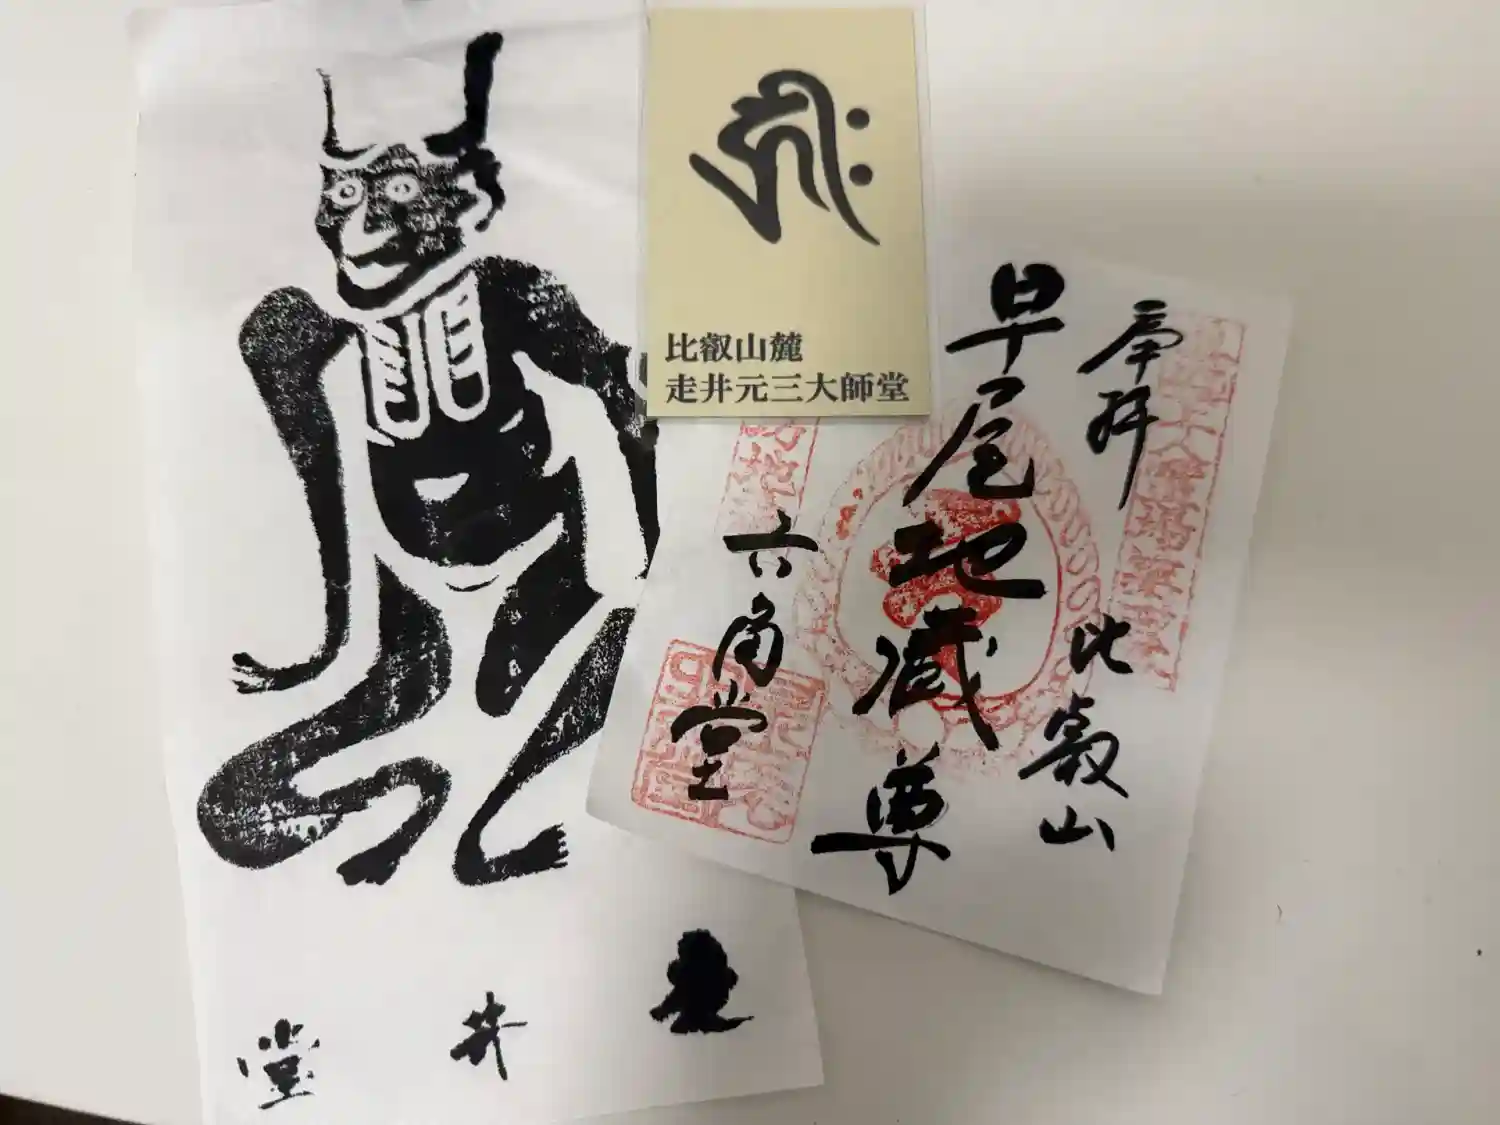 走井堂
𑖮𑖿𑖨𑖱𑖾
比叡山麓
走井元三大師堂
奉拝
比叡山
早尾地蔵尊
六角堂